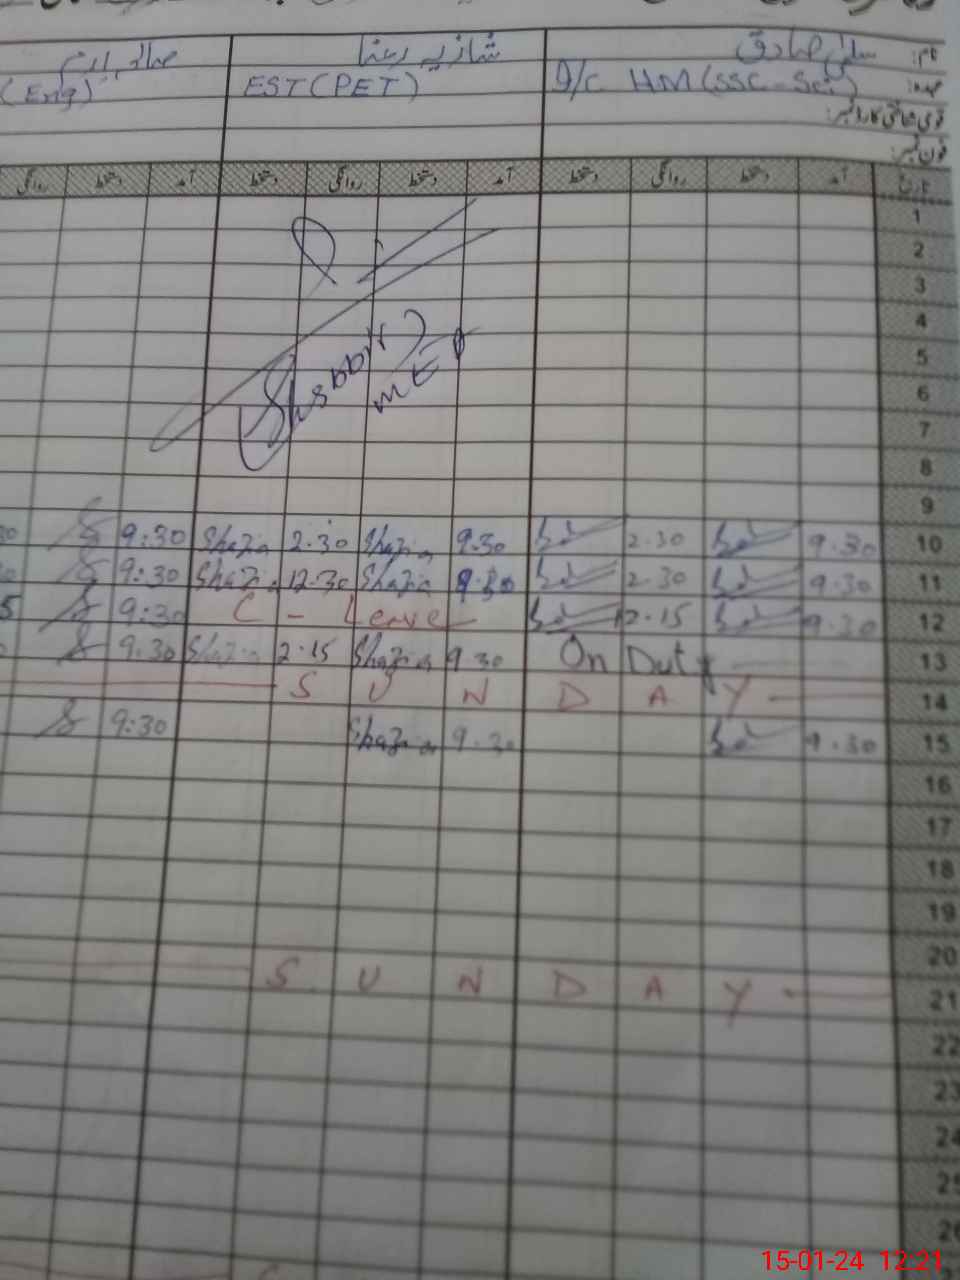 نام: سلمیٰ صادق شازیہ رعنا صائمہ ارم
عہدہ: I/C HM (SSC-Sci) EST (PET) (Eng)
قومی شناختی کارڈ نمبر:
فون نمبر:
تاریخ آمد دستخط روانگی دستخط آمد دستخط روانگی دستخط آمد دستخط روانگی
1
2
3
4
5
Shabbir
MEA
6
7
8
9
9:30 Shazia 2.30 Shazia 9.30 2.30 9.30 10
9:30 Shazia 12.30 Shazia 9.30 2.30 9.30 11
9:30 C - Leave 2.15 9.30 12
9.30 Shazia 2.15 Shazia 9.30 On Duty 13
S U N D A Y 14
9:30 Shazia 9.30 9.30 15
16
17
18
19
20
S U N D A Y 21
22
23
24
25
26
15-01-24 12:21